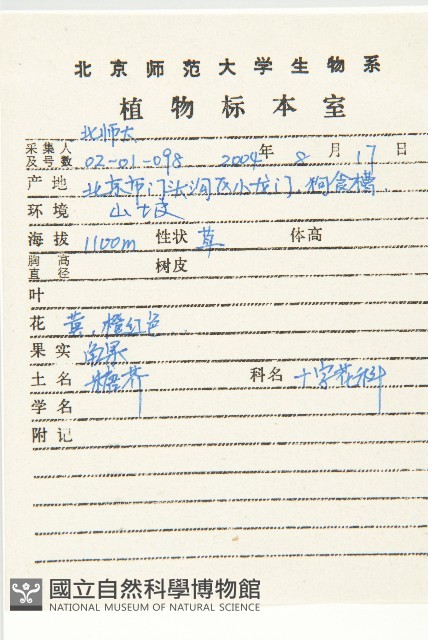 北京师范大学生物系
植物标本室
采集人及号数 北师大 02-01-098 2004年 8月 17日
产地 北京市门头沟区小龙门,狗食槽
环境 山坡
海拔 1100m 性状 草 体高
胸高直径 树皮
叶
花 黄,橙红色
果实 角果
土名 糖芥 科名 十字花科
学名
附记
國立自然科學博物館
NATIONAL MUSEUM OF NATURAL SCIENCE